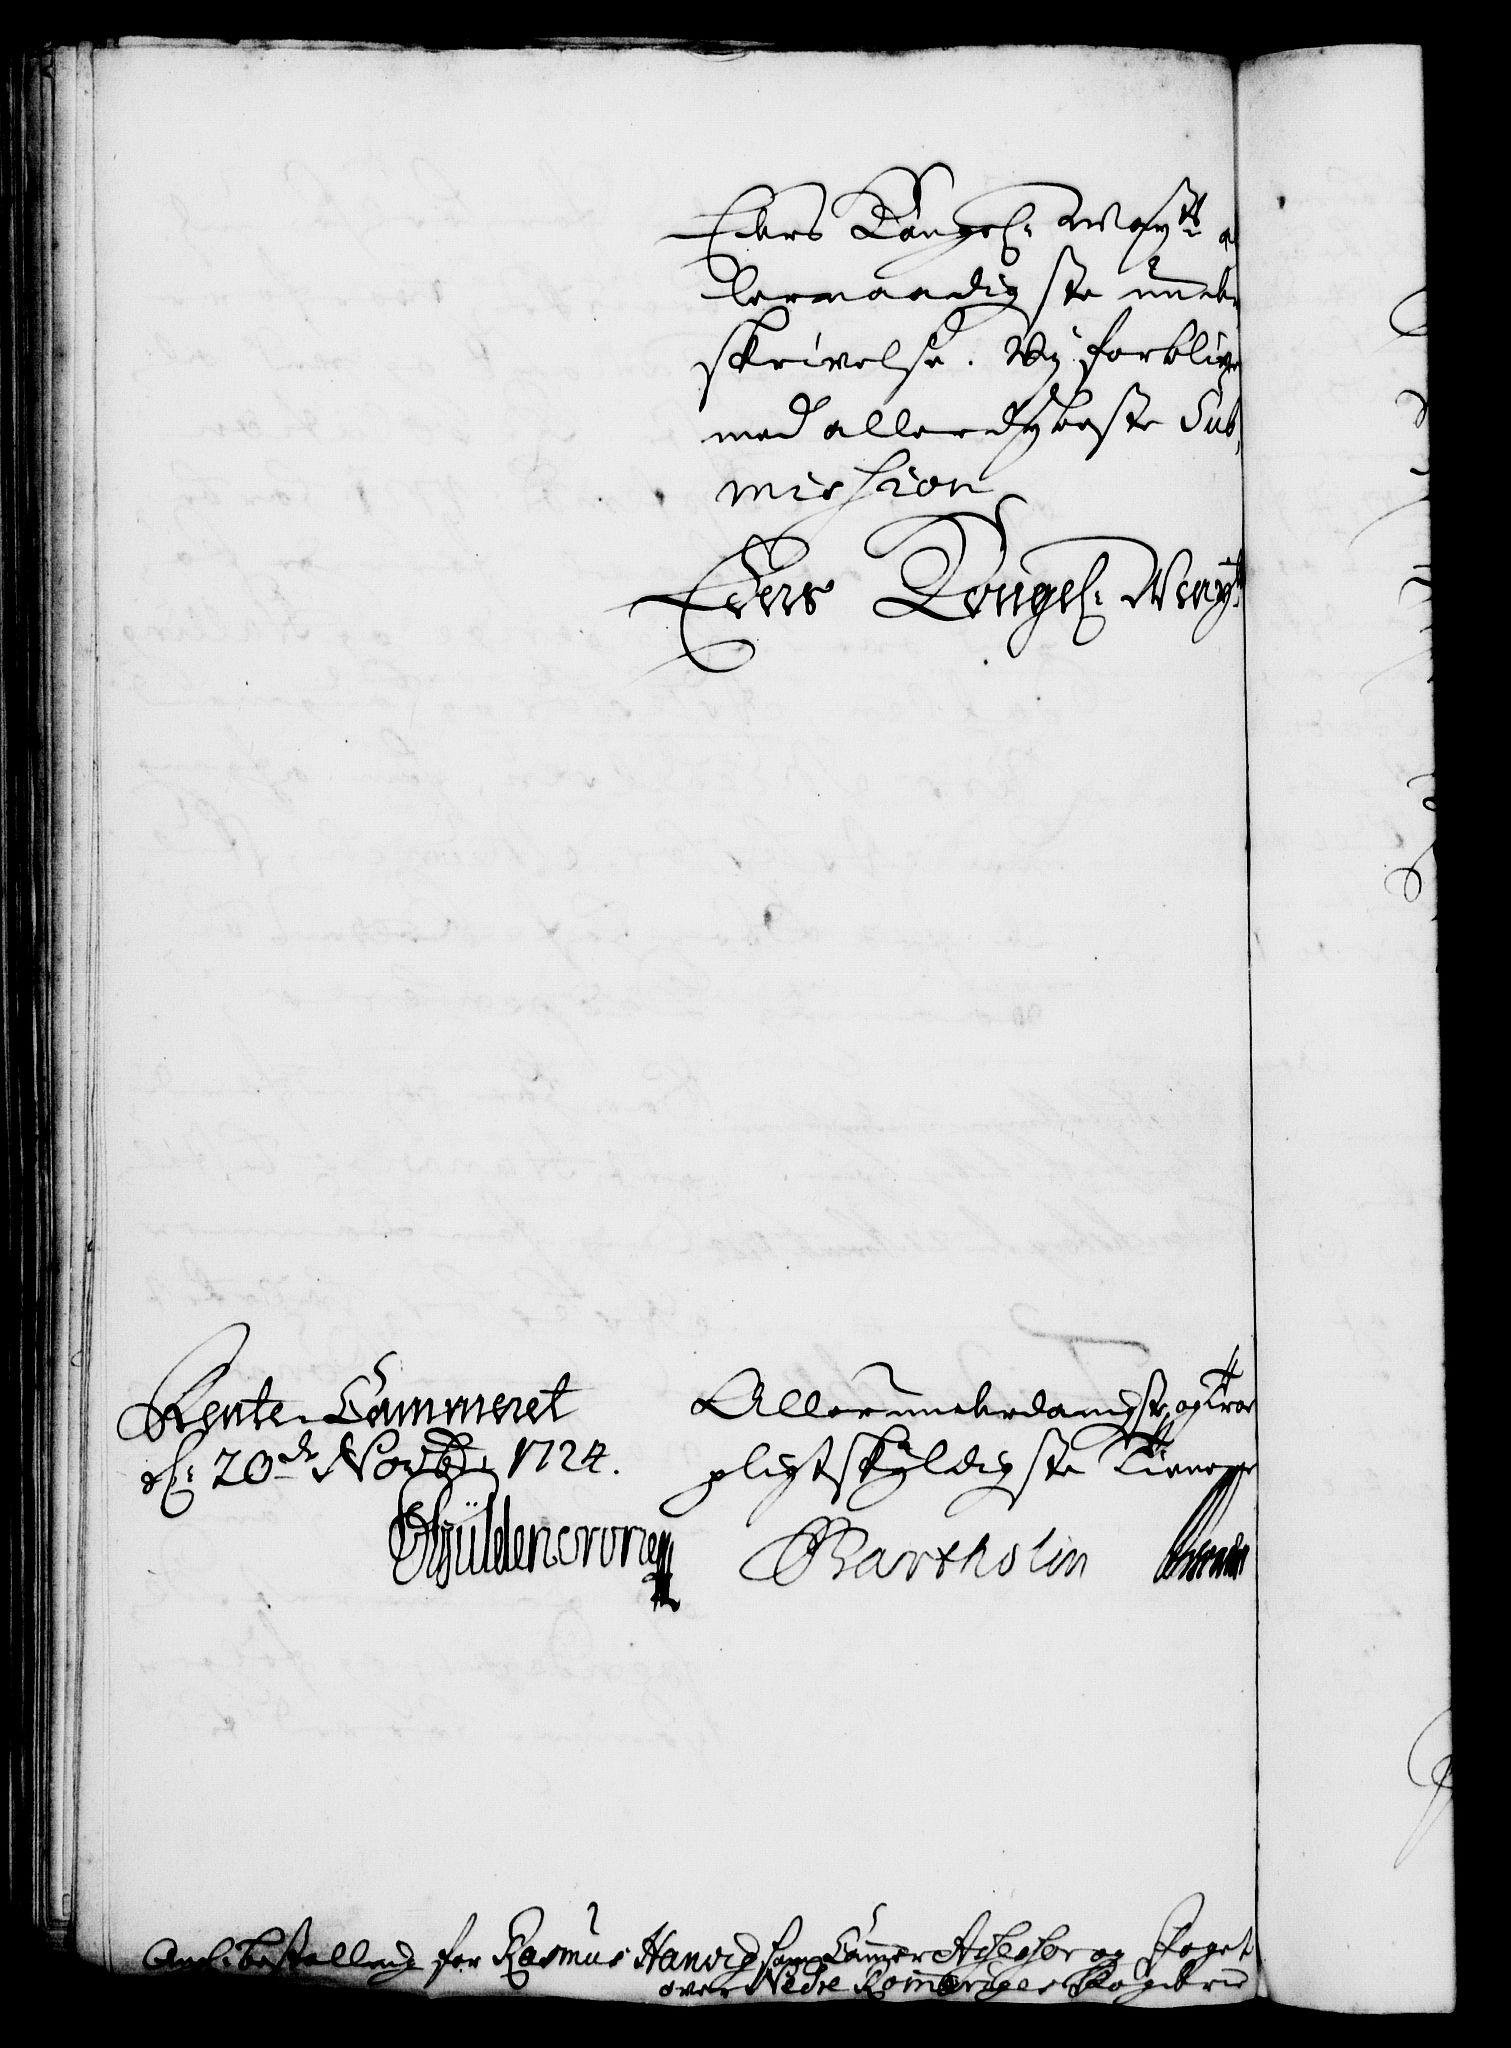 Eders Kongel: May:ts a
lernaadigste under
skrivelse. Vij forblive
med allerdybeste Sub,
mission
Eders Kongel: May:ts
Rente Cammeret
d: 20de Novbr 1724.
Allerunderdanigste og troe
pligtskyldigste Tienere
Güldencrone Bartholin
Anl: bestalling for Rasmus Hanvig som Cammer Assessor og Foget
over Nedre Rommeriges Fogderie